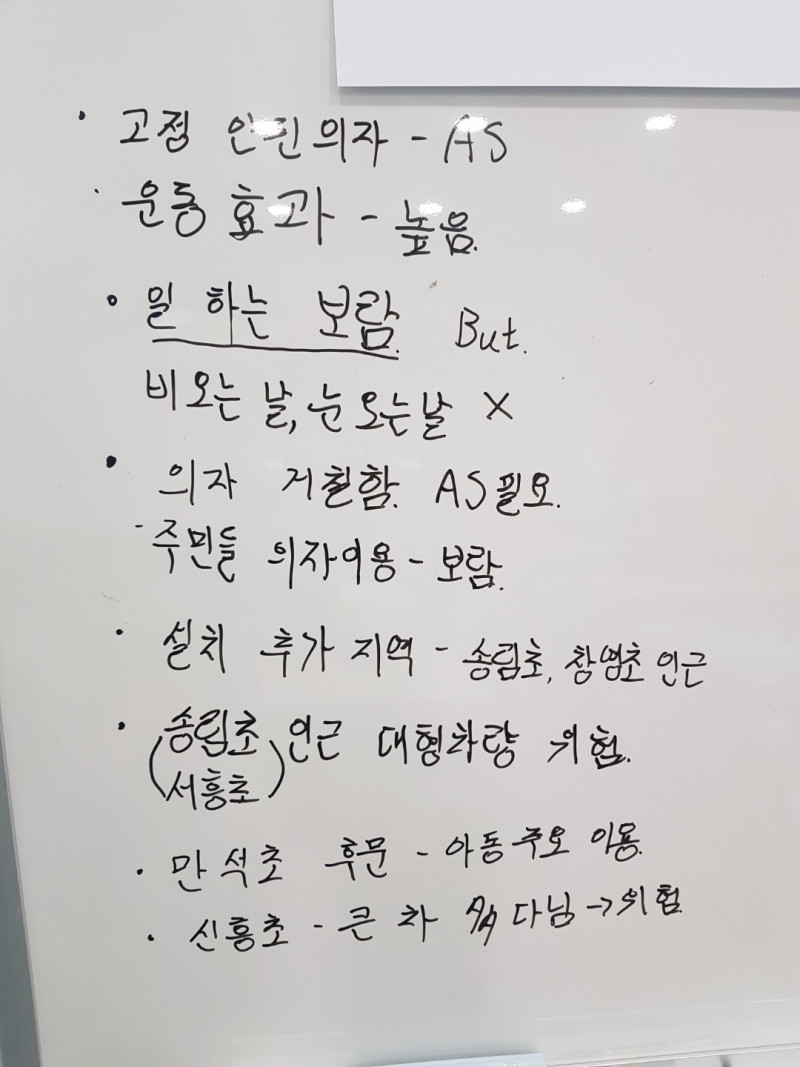 · 고정 의자 - AS
· 운동 효과 - 높음.
· 일 하는 보람. But.
비오는 날, 눈 오는날 X
· 의자 거칠함. AS필요.
- 주민들 의자이용 - 보람.
· 설치 추가 지역 - 송림초, 창영초 인근
· 송림초 인근 대형차량 위험.
(서흥초)
· 만석초 후문 - 아동 주요 이용.
· 신흥초 - 큰 차 多 다님 → 위험.